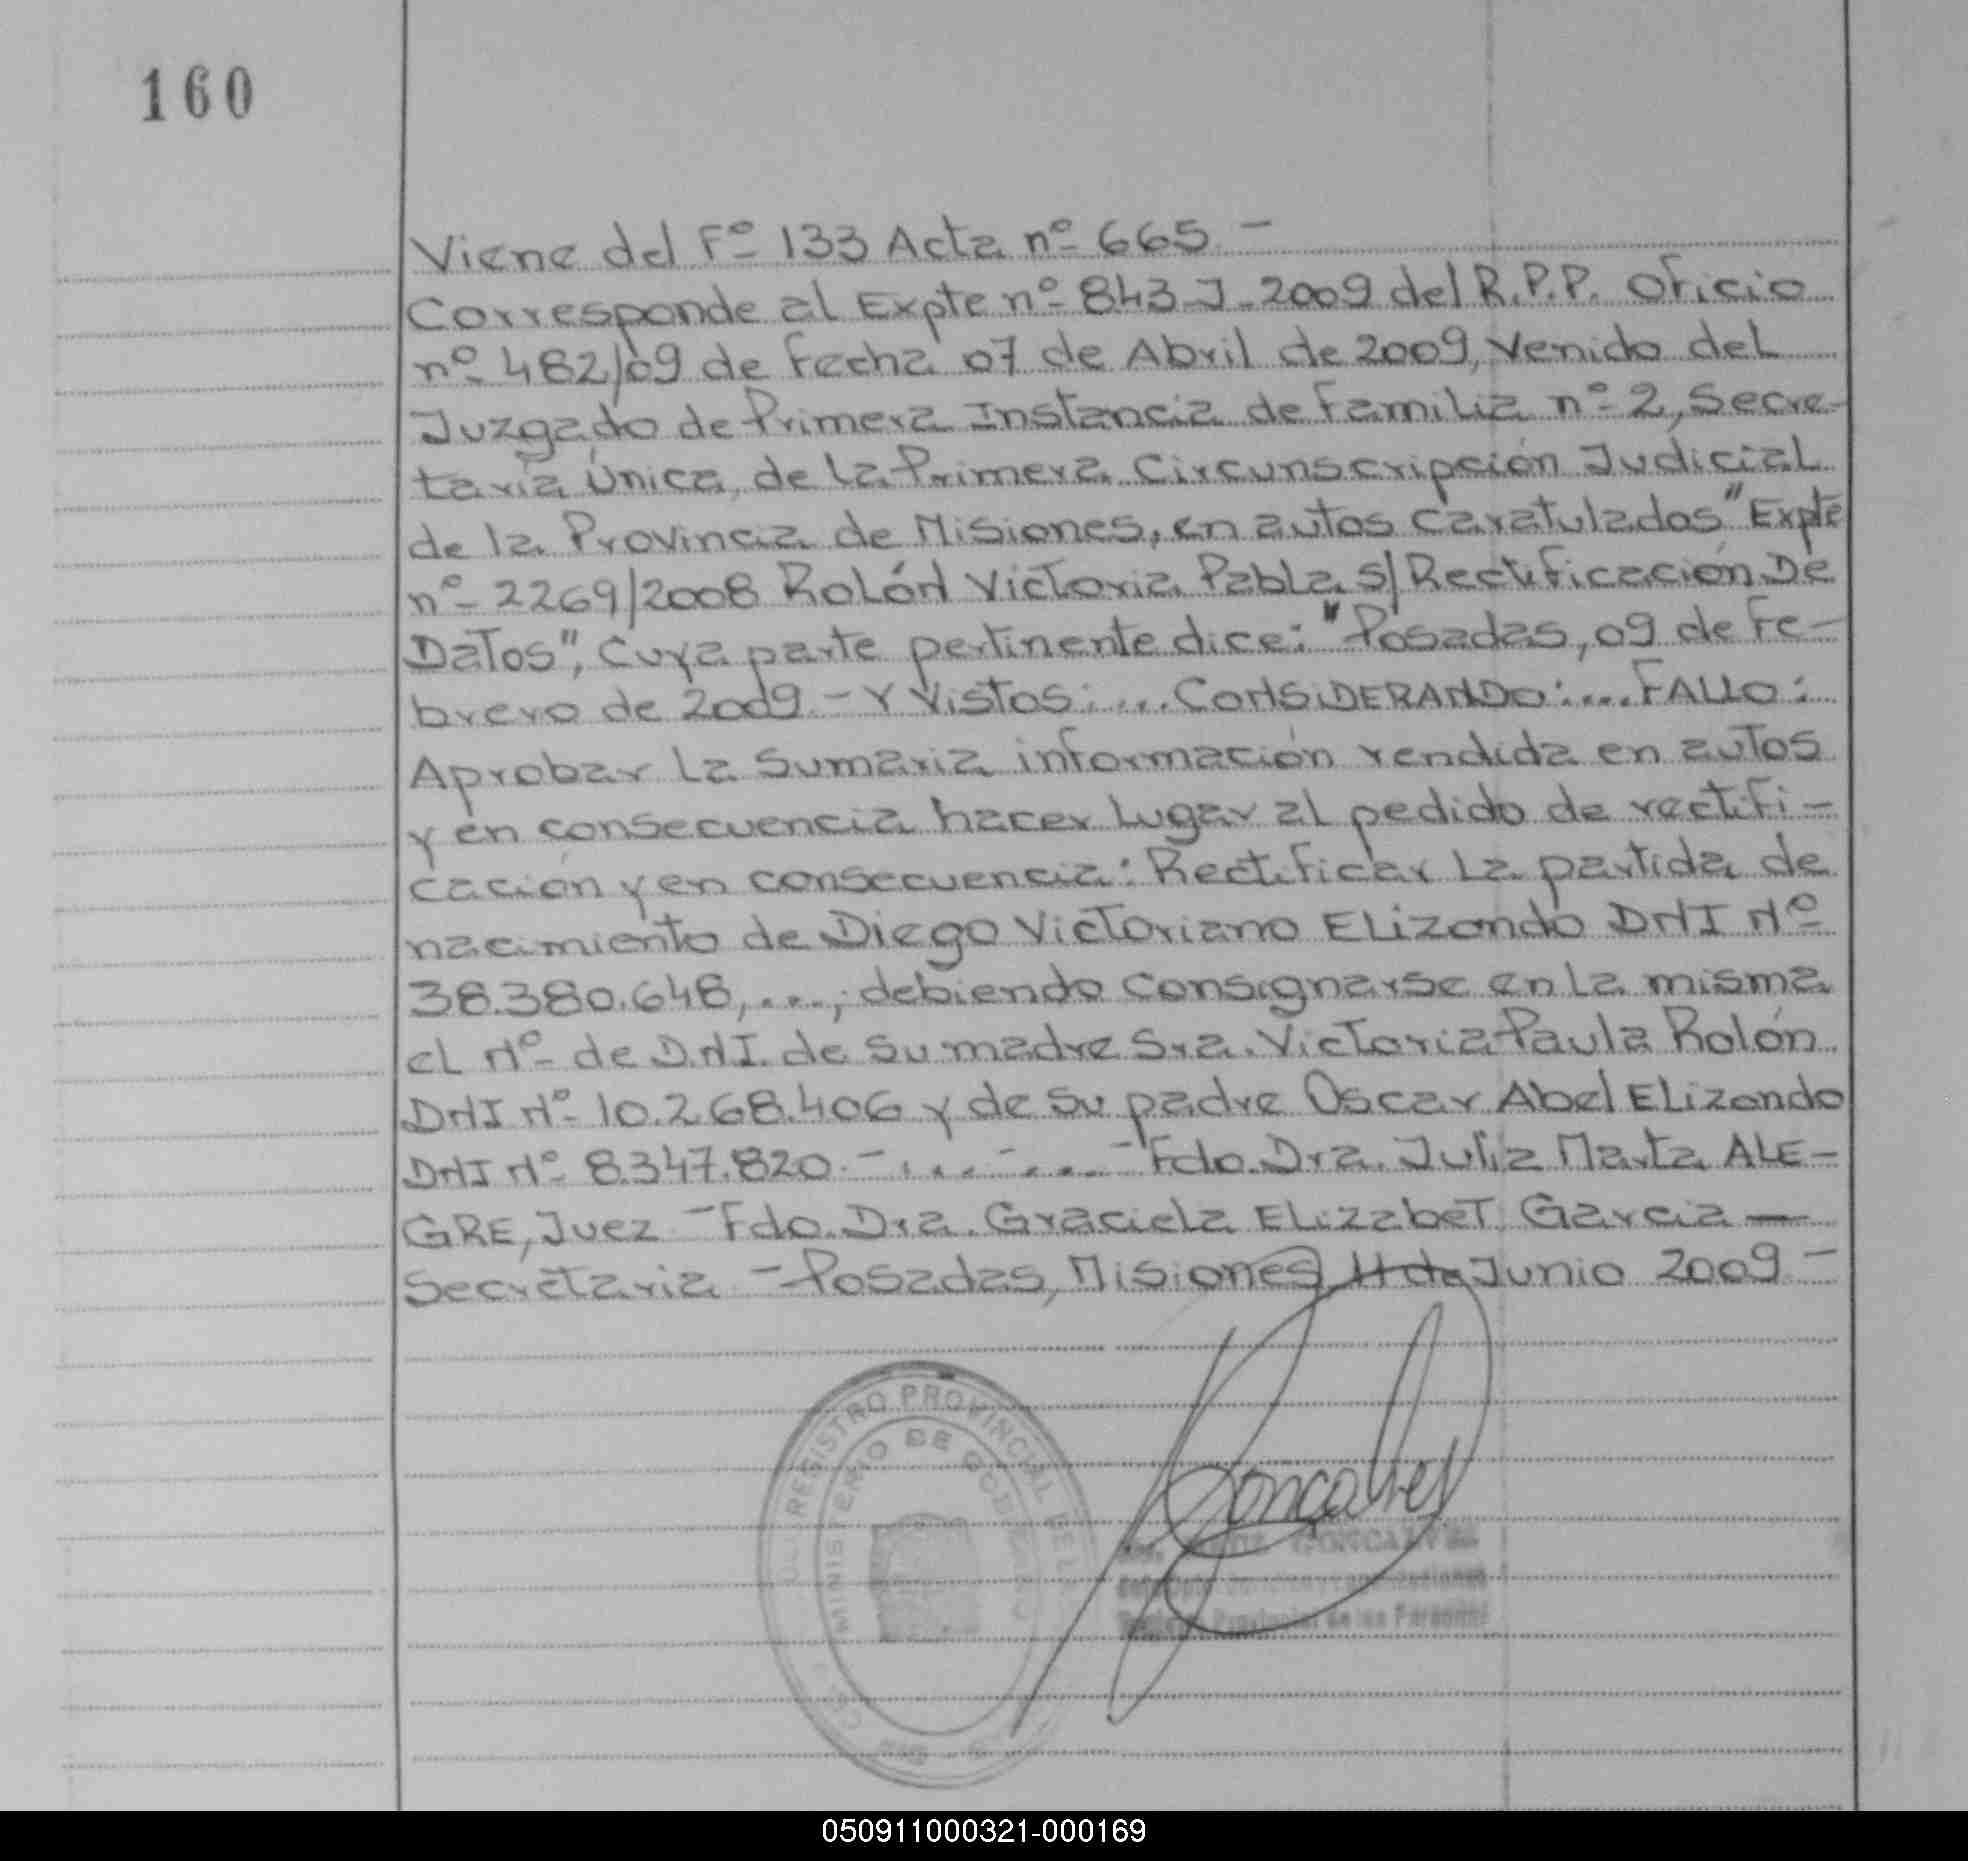 160
Viene del Fº 133 Acta nº 665 -
Corresponde al Expte nº 843-J-2009 del R.P.P. Oficio
nº 482/09 de Fecha 07 de Abril de 2009, Venido del
Juzgado de Primera Instancia de Familia nº 2, Secre-
taria Única, de la Primera Circunscripción Judicial
de la Provincia de Misiones, en autos caratulados "Expte
nº 2269/2008 Rolón Victoria Pabla s/ Rectificación De
Datos", cuya parte pertinente dice: "Posadas, 09 de Fe-
brero de 2009.- Y Vistos:... CONSIDERANDO:... FALLO:
Aprobar la Sumaria información rendida en autos
y en consecuencia hacer lugar al pedido de rectifi-
cación y en consecuencia: Rectificar la partida de
nacimiento de Diego Victoriano Elizondo DNI Nº
38.380.648, ..., debiendo consignarse en la misma
el Nº de D.N.I. de su madre Sra. Victoria Paula Rolón
DNI Nº 10.268.406 y de su padre Oscar Abel Elizondo
DNI Nº 8.347.820.- ... - ... - Fdo. Dra. Julia Marta ALE-
GRE, Juez - Fdo. Dra. Graciela Elizabet Garcia -
Secretaria - Posadas, Misiones, 11 de Junio 2009 -
REGISTRO PROVINCIAL DE LAS
MINISTERIO DE GOBIERNO
Goncalves
GONCALVES
Registro Provincial de las Personas
050911000321-000169